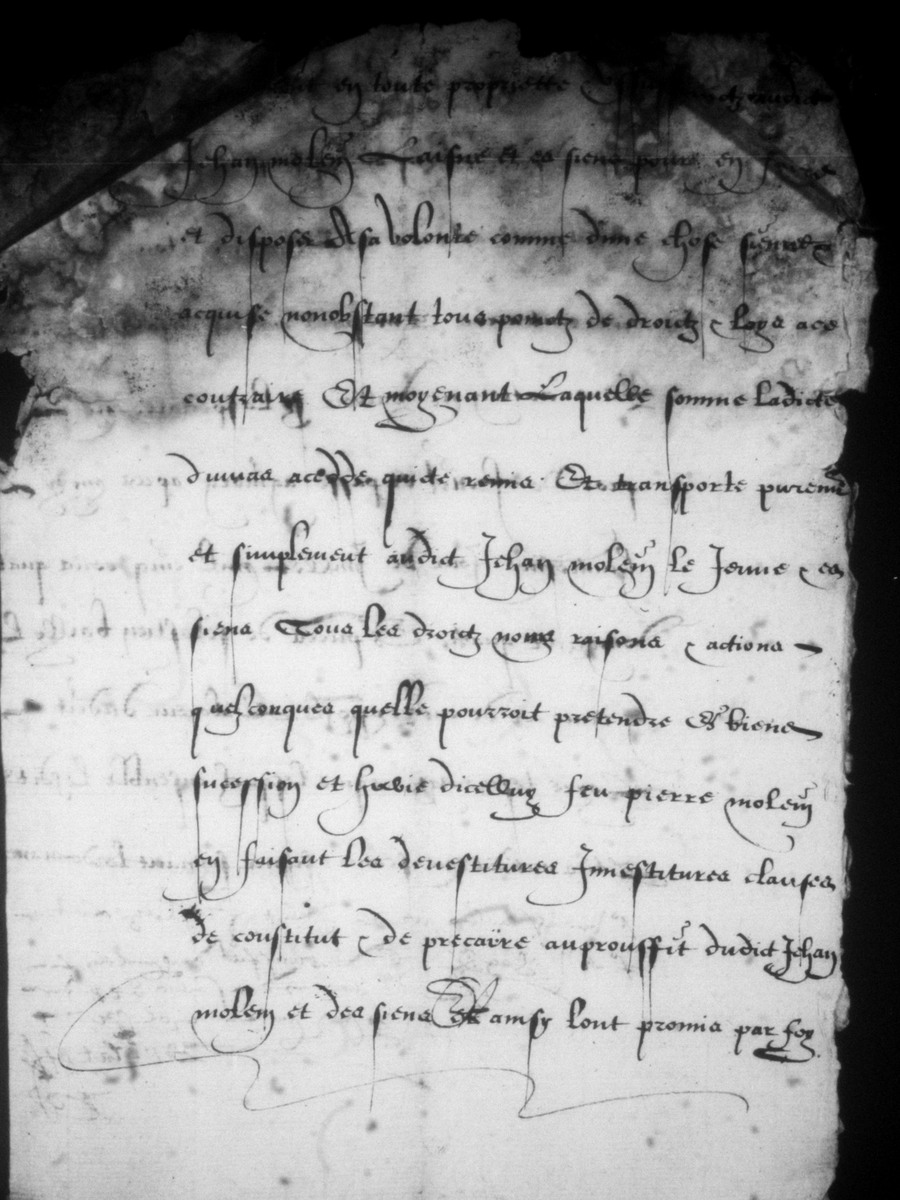 en toute propriette
Jehan molem Laisne et es siens pour en
et disposer de sa volonte comme dune chose sienne
acquise nonobstant tous de droictz & loys aes
contraire Et moyenant Laquelle somme Ladicte
dumas acedde quicte remis Et transporte purem̃
et simplement audict Jehan molem le Jeune & es
siens Tous Les droictz noms raisons & actions
quelconques quelle pourroit pretendre Es biens
sucession et hoirie dicelluy feu pierre molem
en faisant les devestitures Jnnestitures clauses
de constitut & de precaire auprouffit dudict Jehan
molem et des siens Et ainsy lont promis par foy